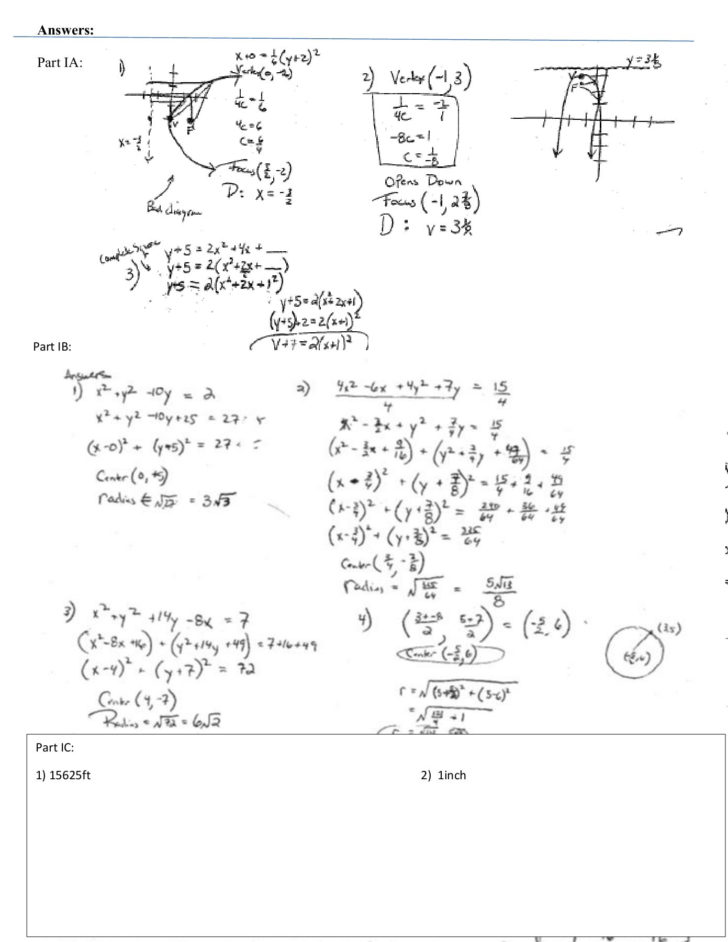 Answers:
Part IA:
1)
x+0 = 1/6(y+2)²
Vertex(0, -2)
1/4c = 1/6
4c=6
c=6/4
Focus(3/2, -2)
D: x = -3/2
x=-3/2
Bad diagram
2) Vertex(-1,3)
1/4c = -2/1
-8c=1
c = 1/-8
Opens Down
Focus (-1, 2 7/8)
D: y = 3 1/8
y = 3 1/8
Complete Square
3) y+5 = 2x² +4x + __
y+5 = 2(x²+2x+ __)
y+5 = 2(x²+2x+1²)
y+5=2(x²+2x+1)
(y+5)+2=2(x+1)²
y+7=2(x+1)²
Part IB:
Answers
1) x²+y² -10y = 2
x²+y²-10y+25 = 27
(x-0)² + (y-5)² = 27
Center (0, +5)
radius = √27 = 3√3
2) 4x² -6x + 4y² +7y = 15
4 4
x² - 3/2x + y² + 7/4y = 15/4
(x² - 3/2x + 9/16) + (y² + 7/4y + 49/64) = 15/4
(x - 3/4)² + (y + 7/8)² = 15/4 + 9/16 + 49/64
(x-3/4)² + (y+7/8)² = 240/64 + 36/64 + 49/64
(x-3/4)² + (y+7/8)² = 325/64
Center (3/4, -7/8)
Radius = √325/64 = 5√13/8
3) x²+y² +14y -8x = 7
(x²-8x+16) + (y²+14y +49) = 7+16+49
(x-4)² + (y+7)² = 72
Center (4, -7)
Radius = √72 = 6√2
4) (3+-8/2, 5+7/2) = (-5/2, 6)
Center (-5/2, 6)
(3,5)
(-5/2, 6)
Part IC:
1) 15625ft
2) 1inch